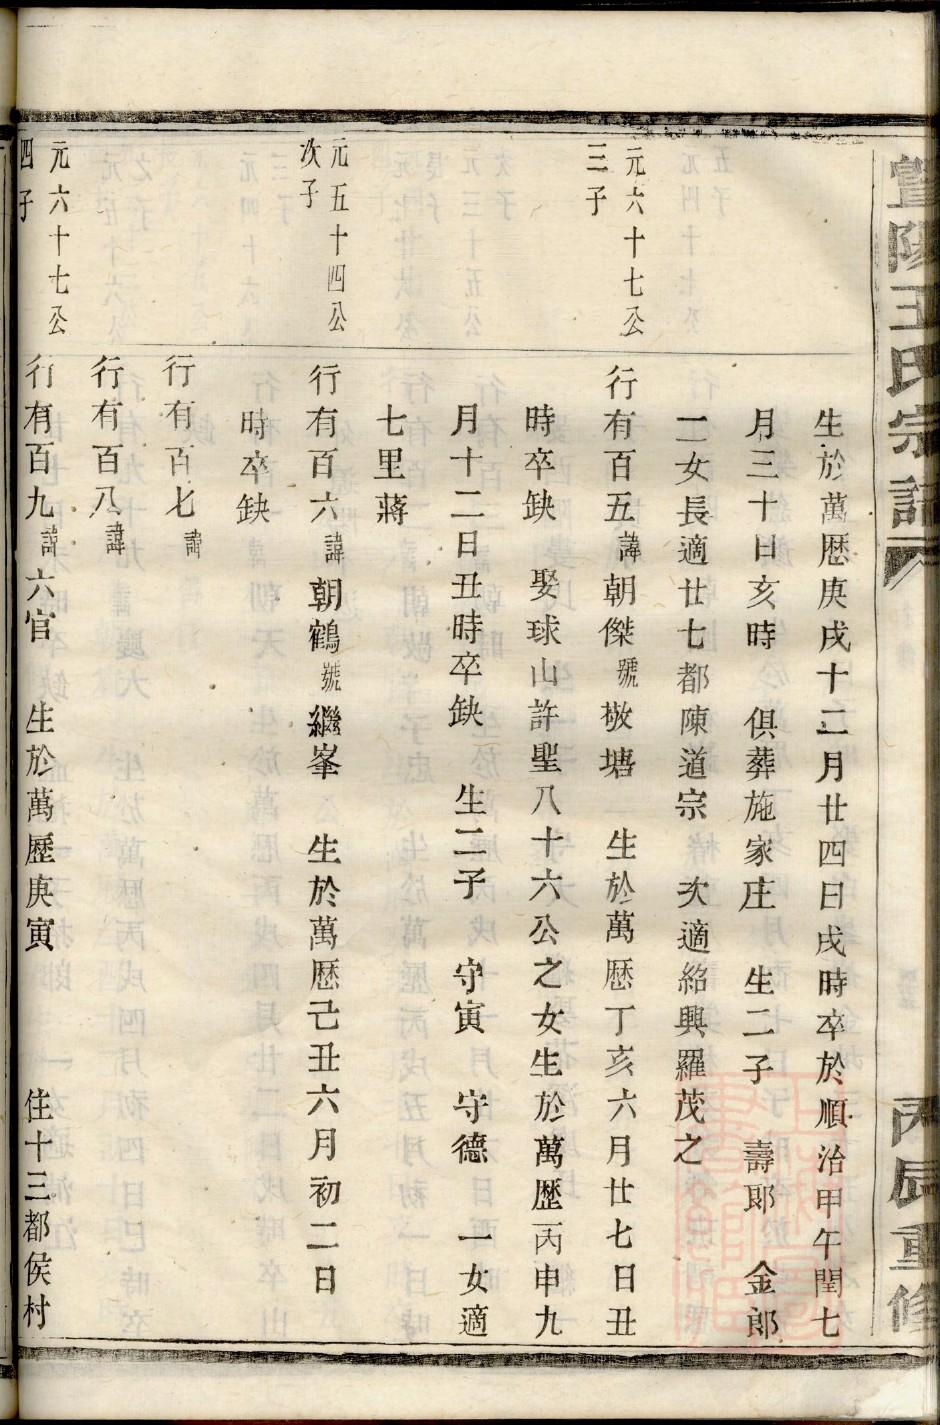 暨陽王氏宗譜
丙辰重修
生於萬歴庚戌十二月廿四日戌時卒於順治甲午閏七
月三十日亥時 俱葬施家庄 生二子 壽郎 金郎
二女長適廿七都陳道宗 次適紹興羅茂之
元六十七公
三子
行有百五諱朝傑號敬塘 生於萬歷丁亥六月廿七日丑
時卒缺 娶球山許聖八十六公之女生於萬歷丙申九
月十二日丑時卒缺 生二子 守寅 守德 一女適
七里蔣
元五十四公
次子
行有百六諱朝鶴號繼峯 生於萬歷己丑六月初二日
時卒缺
行有百七諱
行有百八諱
元六十七公
四子
行有百九諱六官 生於萬歷庚寅 住十三都侯村